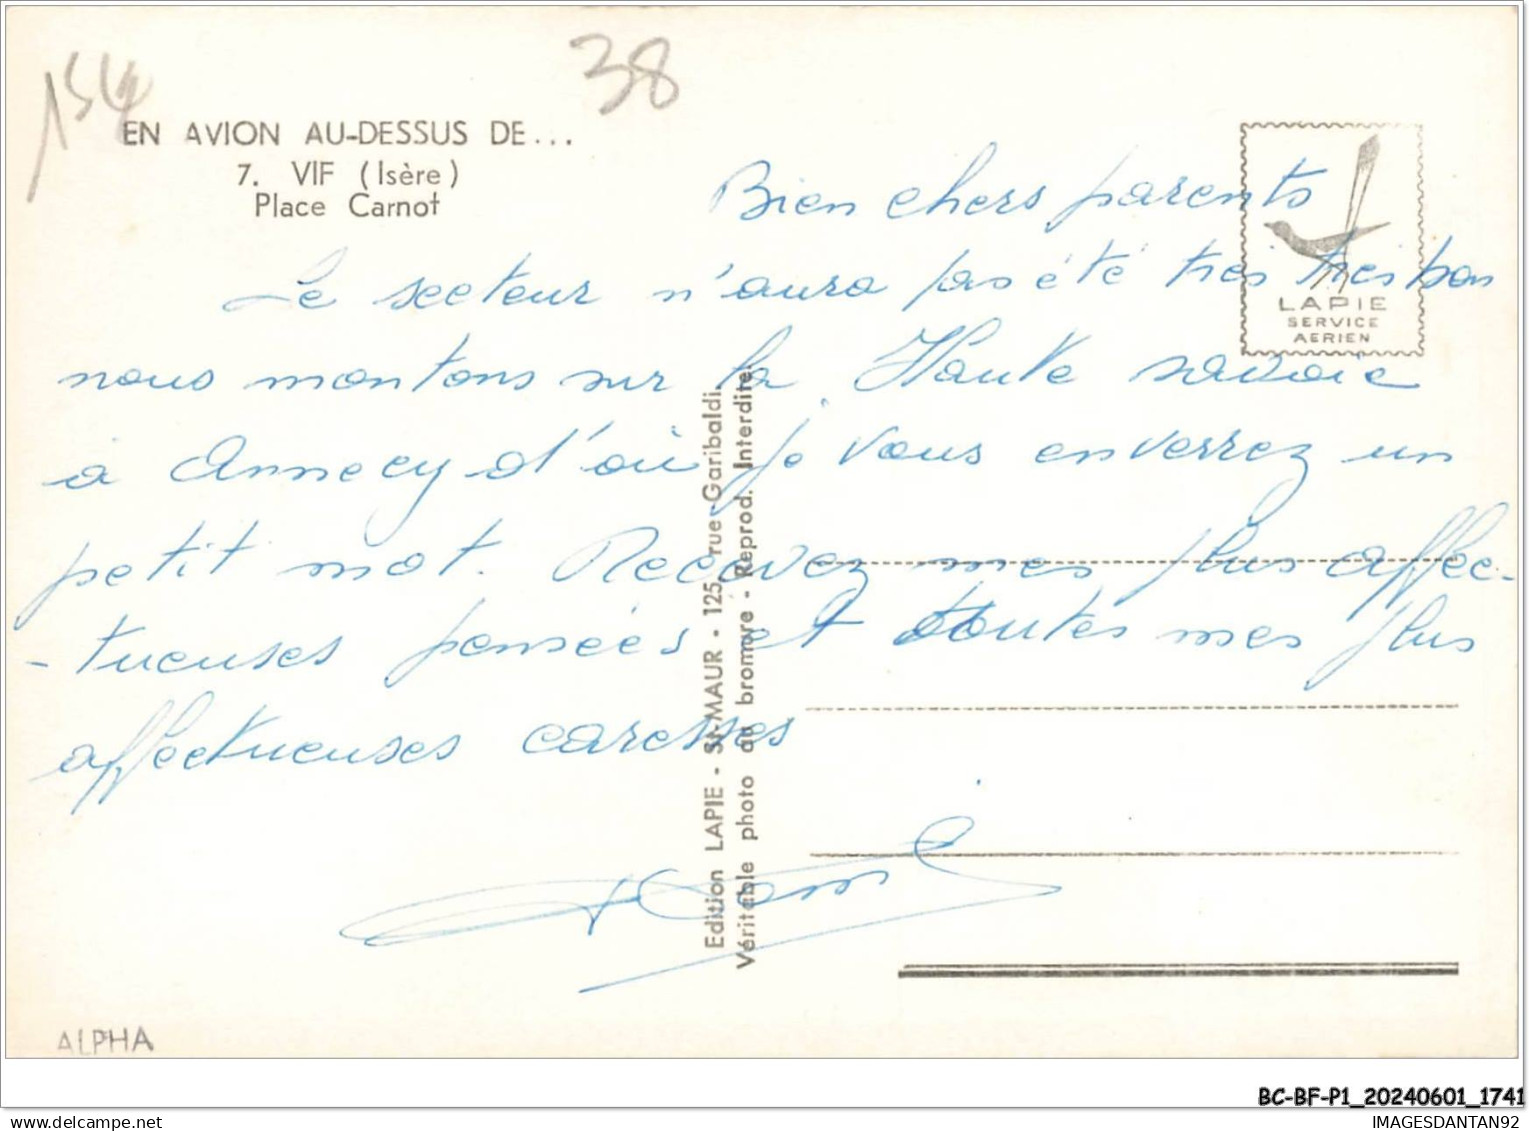 154
38
EN AVION AU-DESSUS DE...
7. VIF (Isère)
Place Carnot
LAPIE
SERVICE
AERIEN
Bien chers parents
Le secteur n'aura pas été très très bon
nous montons sur la Haute savoie
à Annecy d'où je vous enverrez un
petit mot. Recevez mes plus affec-
-tueuses pensées et toutes mes plus
affectueuses caresses
Edition LAPIE - St-MAUR - 125, rue Garibaldi.
Véritable photo au bromure - Reprod. Interdite.
ALPHA
BC-BF-P1_20240601_1741
delcampe.net
IMAGESDANTAN92